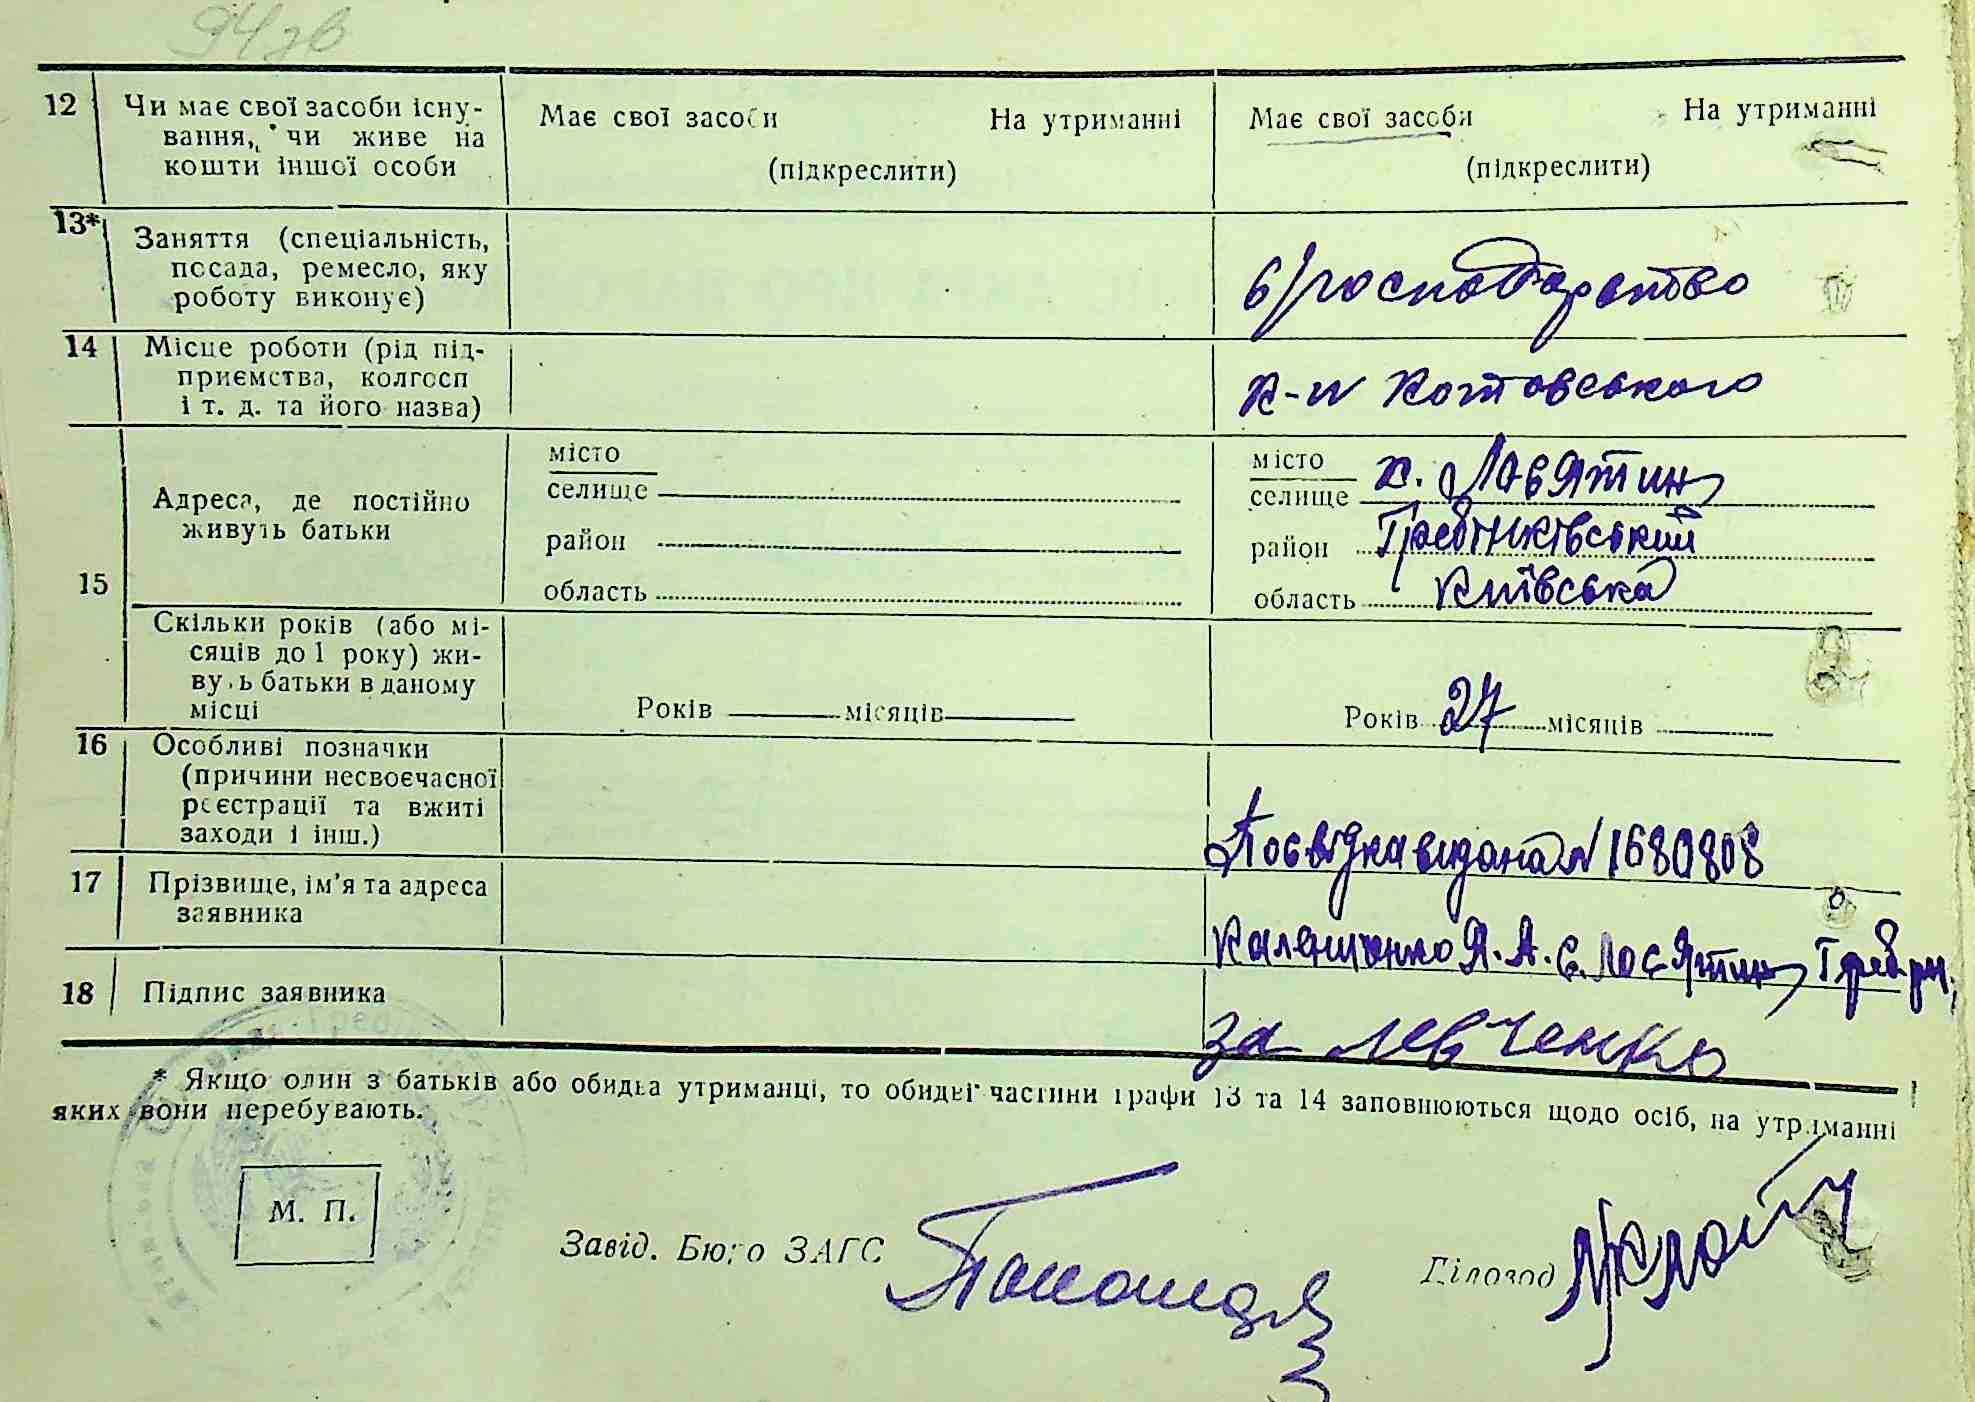 94 зв
12 Чи має свої засоби існу-
вання, чи живе на
кошти іншої особи
Має свої засоби На утриманні
(підкреслити)
Має свої засоби На утриманні
(підкреслити)
13* Заняття (спеціальність,
посада, ремесло, яку
роботу виконує)
в/господарство
14 Місце роботи (рід під-
приємства, колгосп
і т. д. та його назва)
к-п Котовського
15
Адреса, де постійно
живуть батьки
місто
селище
район
область
місто
селище х. Лосятин
район Гребінківський
область Київська
Скільки років (або мі-
сяців до 1 року) жи-
вуть батьки в даному
місці
Років місяців
Років 27 місяців
16 Особливі позначки
(причини несвоєчасної
реєстрації та вжиті
заходи і інш.)
Посвідка видана № 1680808
17 Прізвище, ім'я та адреса
заявника
Каленіченко Я. А. с. Лосятин, Греб. рн,
18 Підпис заявника
за Левченко
* Якщо один з батьків або обидва утриманці, то обидві частини графи 13 та 14 заповнюються щодо осіб, на утриманні
яких вони перебувають.
М. П.
Завід. Бюро ЗАГС
Діловод